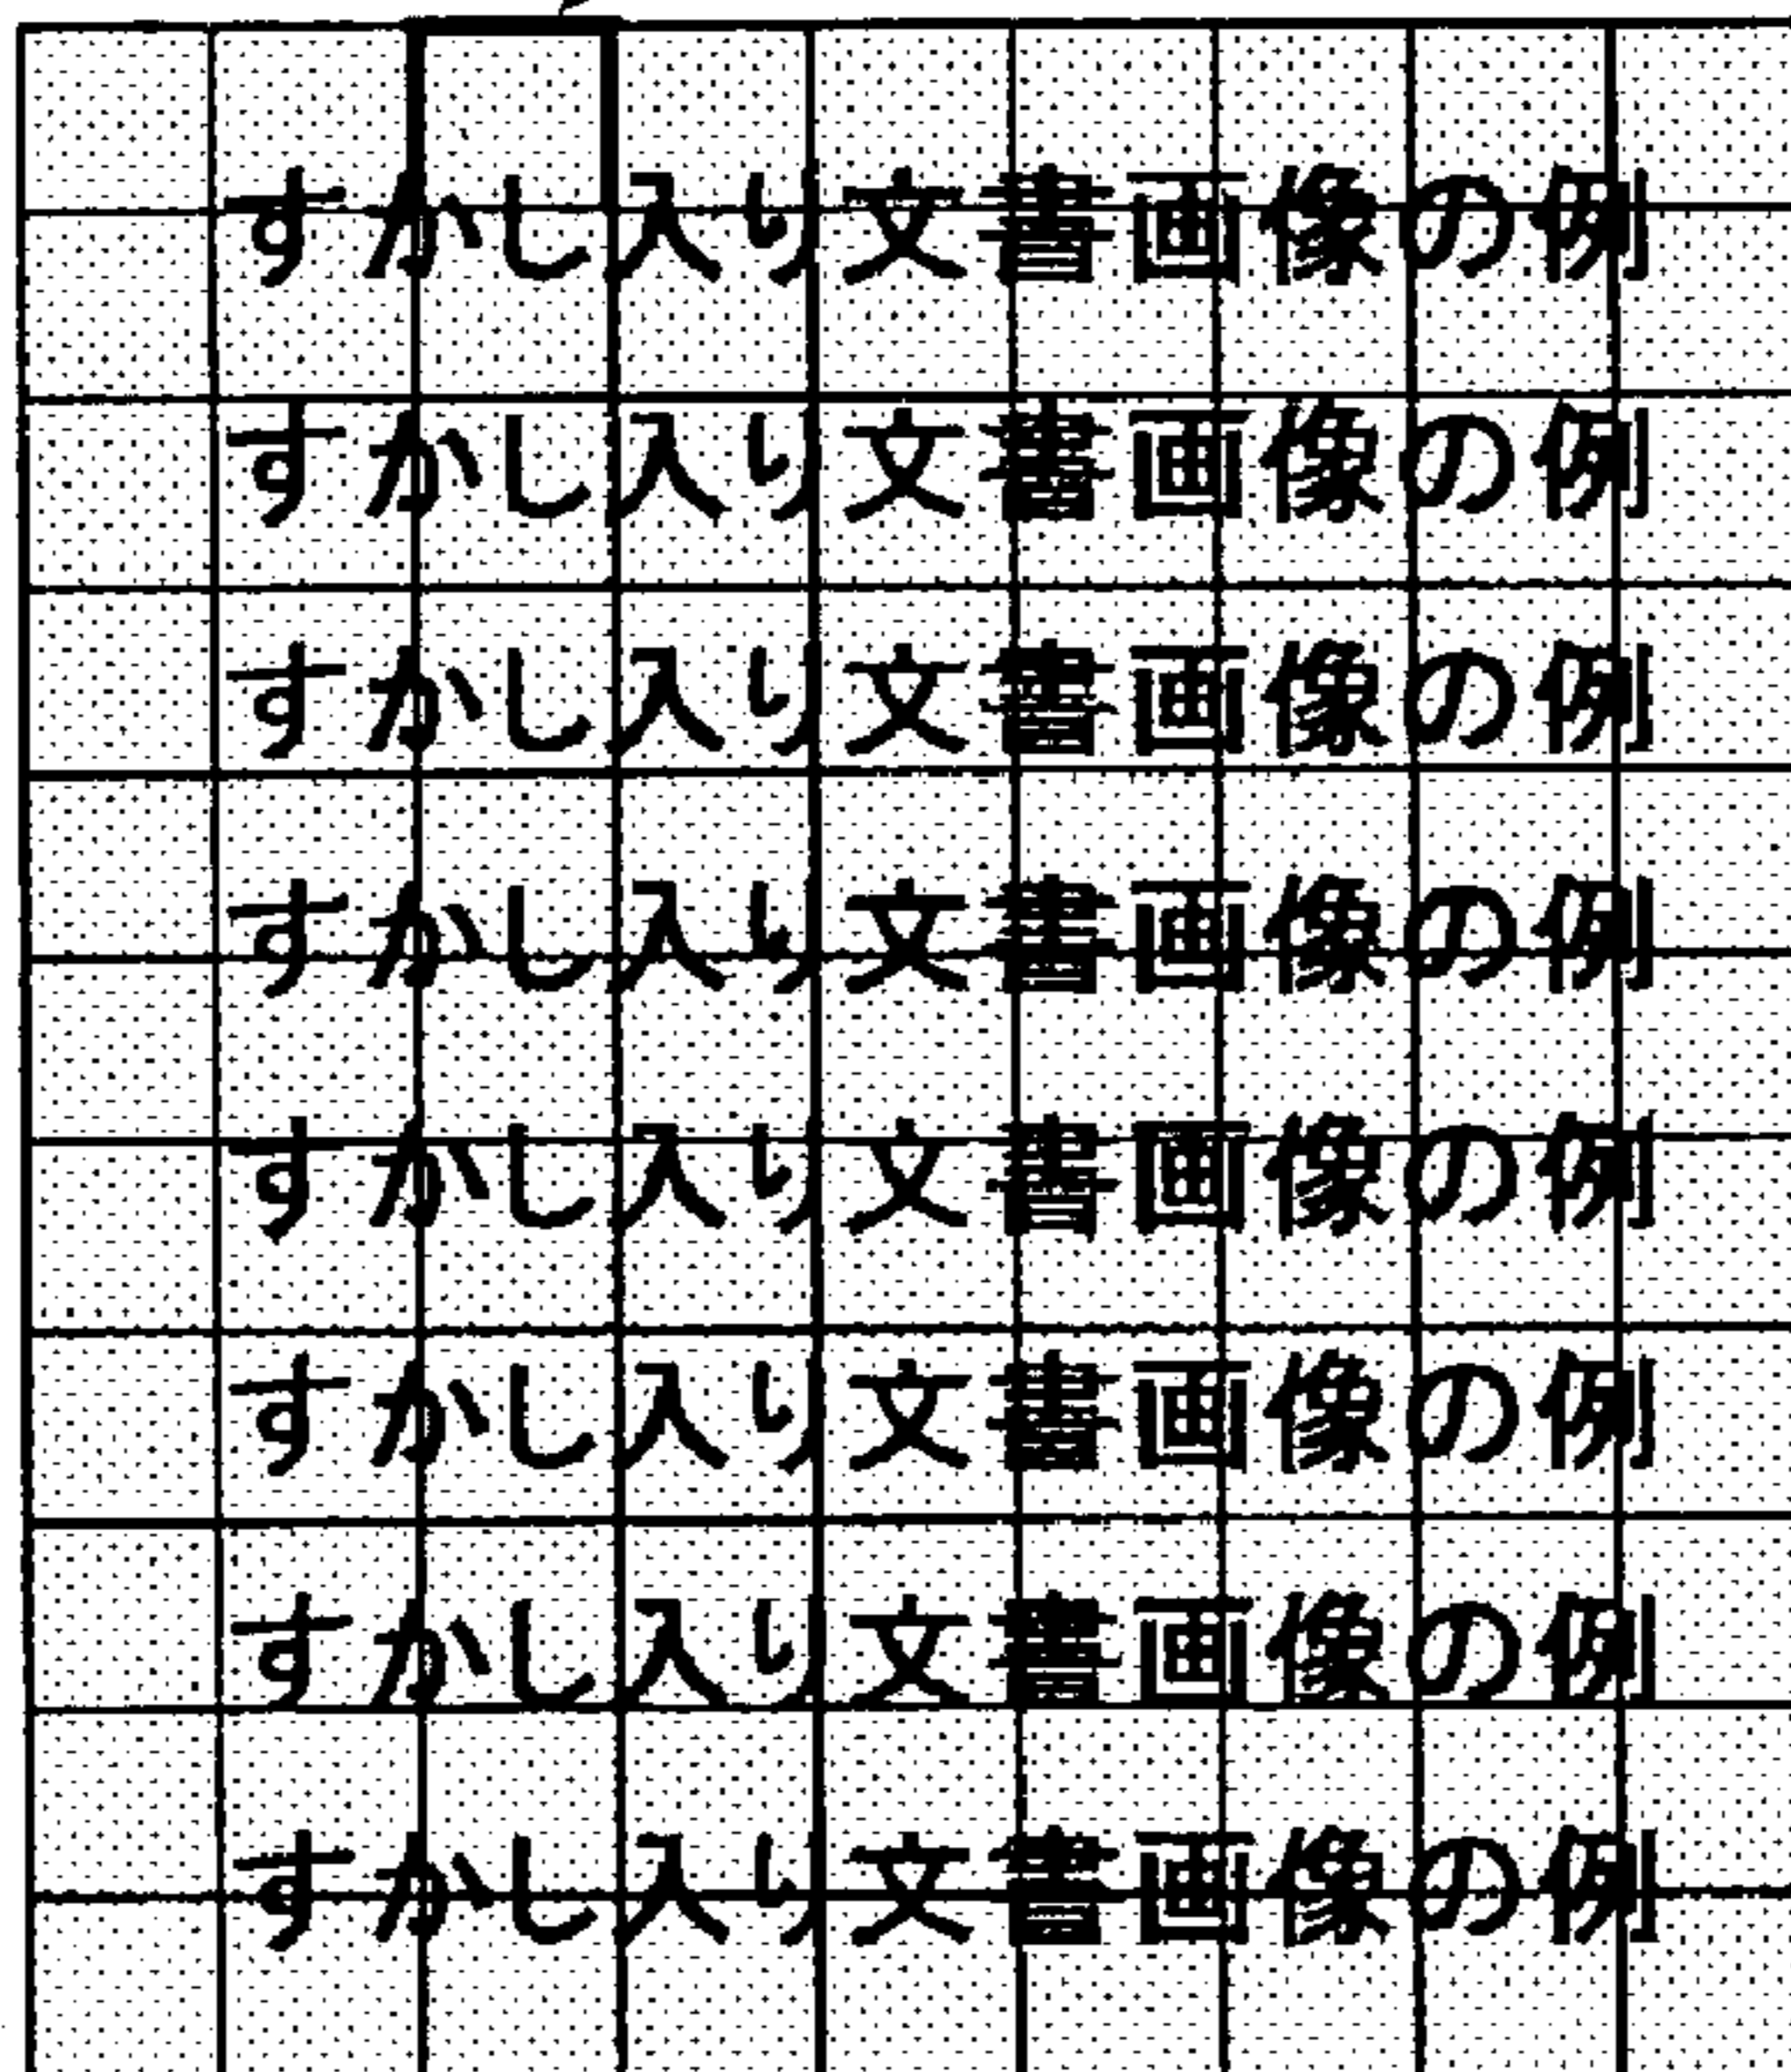 すかし入り文書画像の例
すかし入り文書画像の例
すかし入り文書画像の例
すかし入り文書画像の例
すかし入り文書画像の例
すかし入り文書画像の例
すかし入り文書画像の例
すかし入り文書画像の例